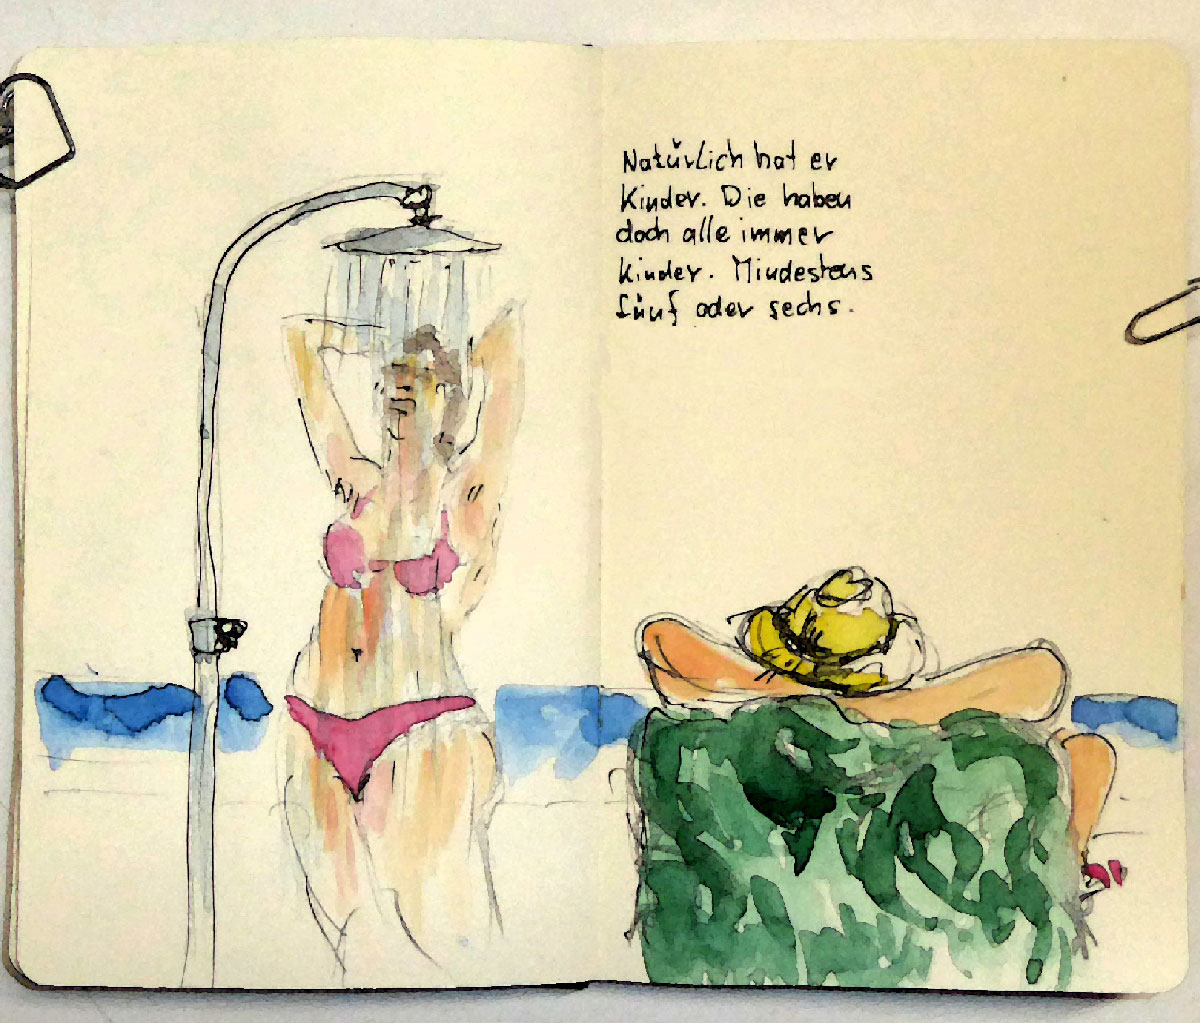 Natürlich hat er
Kinder. Die haben
doch alle immer
Kinder. Mindestens
fünf oder sechs.